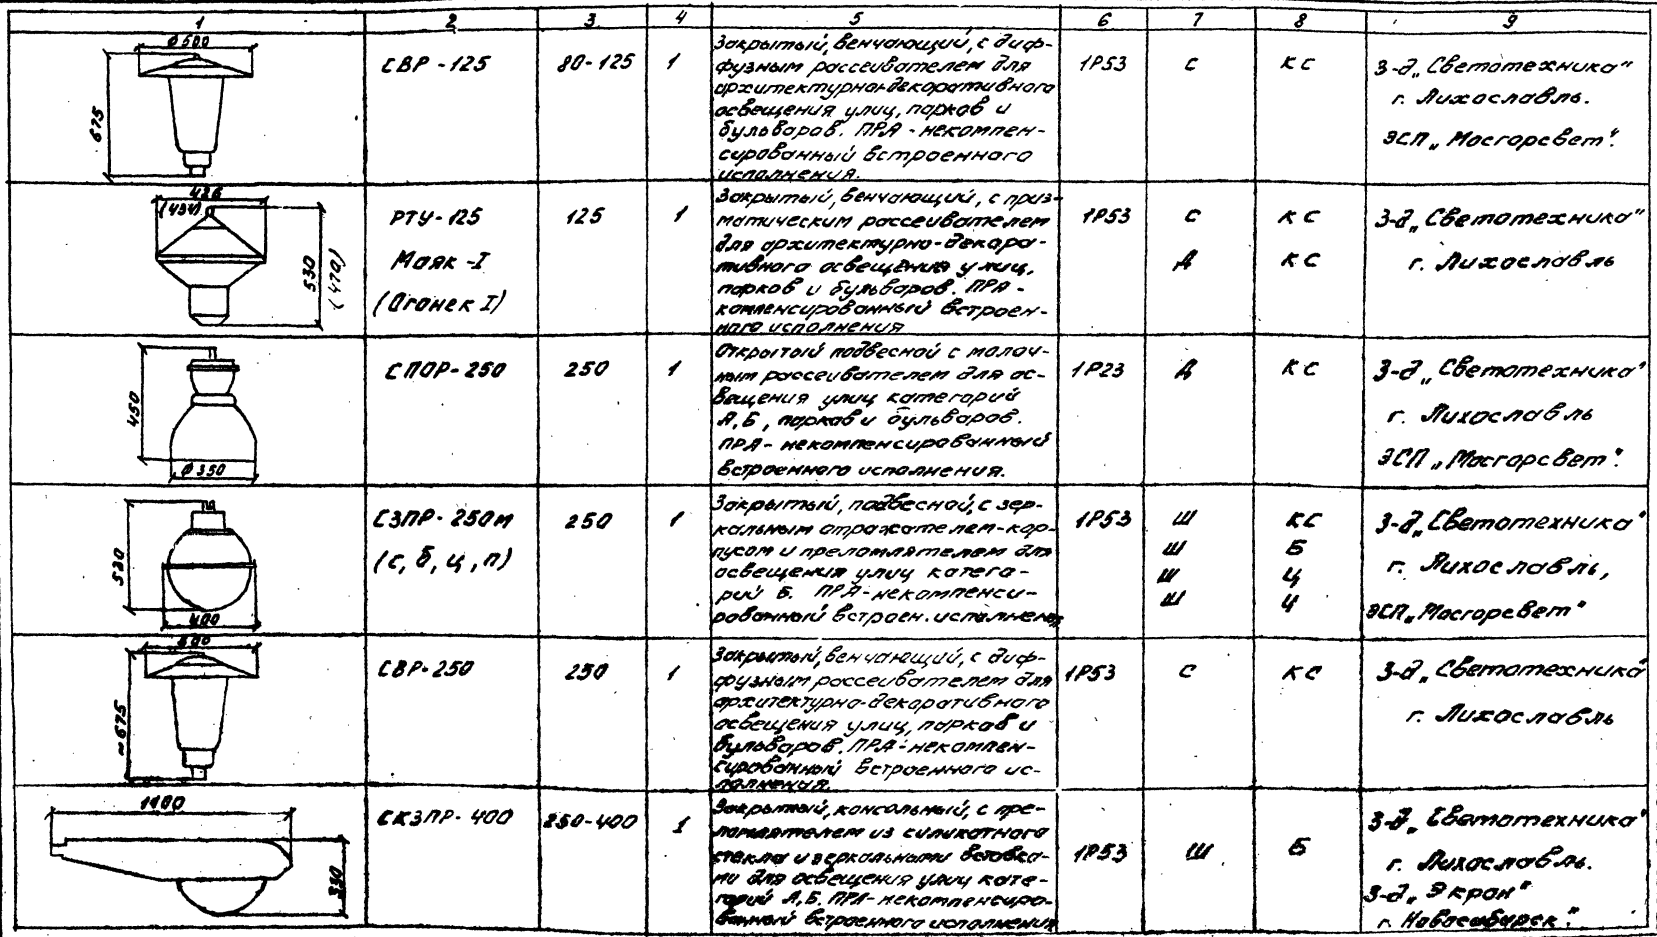 1 2 3 4 5 6 7 8 9
Ø500
675
СВР-125
80-125
1
Закрытый, венчающий, с диф-
фузным рассеивателем для
архитектурно-декоративного
освещения улиц, парков и
бульваров. ПРА - некомпен-
сированный встроенного
исполнения.
1Р53
С
КС
З-д „Светотехника"
г. Лихославль.
ЭСП „Мосгорсвет".
426
(434)
530
(470)
РТУ-125
Маяк-I
(Огонек I)
125
1
Закрытый, венчающий, с приз-
матическим рассеивателем
для архитектурно-декора-
тивного освещения улиц,
парков и бульваров. ПРА -
компенсированный встроен-
ного исполнения
1Р53
С
Д
КС
КС
З-д „Светотехника"
г. Лихославль
450
Ø350
СПОР-250
250
1
Открытый подвесной с молоч-
ным рассеивателем для ос-
вещения улиц категорий
А, Б, парков и бульваров.
ПРА - некомпенсированный
встроенного исполнения.
1Р23
Д
КС
З-д „Светотехника"
г. Лихославль
ЭСП „Мосгорсвет".
520
400
СЗПР-250м
(с, б, ц, п)
250
1
Закрытый, подвесной, с зер-
кальным отражателем-кор-
пусом и преломлятелем для
освещения улиц катего-
рий Б. ПРА-некомпенси-
рованный встроен. исполнения
1Р53
Ш
Ш
Ш
Ш
КС
Б
Ц
Ц
З-д „Светотехника"
г. Лихославль,
ЭСП „Мосгорсвет"
500
~675
СВР-250
250
1
Закрытый, венчающий, с диф-
фузным рассеивателем для
архитектурно-декоративного
освещения улиц, парков и
бульваров. ПРА - некомпен-
сированный встроенного ис-
полнения.
1Р53
С
КС
З-д „Светотехника"
г. Лихославль
1100
330
СКЗПР-400
250-400
1
Закрытый, консольный, с пре-
ломлятелем из силикатного
стекла и зеркальными вставка-
ми для освещения улиц кате-
горий А, Б. ПРА-некомпенсиро-
ванный встроенного исполнения
1Р53
Ш
Б
З-д „Светотехника"
г. Лихославль.
З-д „Экран"
г. Новосибирск".